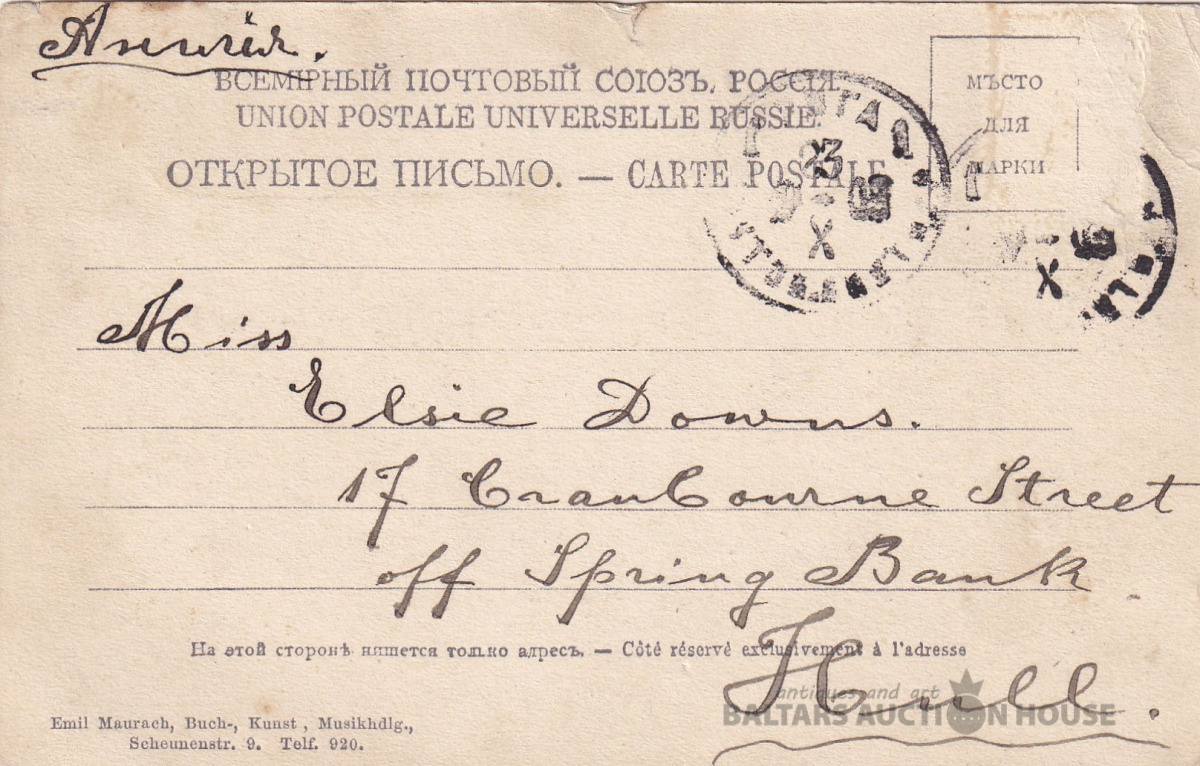 Англія.
ВСЕМІРНЫЙ ПОЧТОВЫЙ СОЮЗЪ. РОССІЯ.
UNION POSTALE UNIVERSELLE RUSSIE.
ОТКРЫТОЕ ПИСЬМО. — CARTE POSTALE
МѢСТО
ДЛЯ
МАРКИ
23
X
X
Miss
Elsie Downs.
17 Cranbourne Street
off Spring Bank
Hull.
На этой сторонѣ пишется только адресъ. — Côté réservé exclusivement à l'adresse
Emil Maurach, Buch-, Kunst, Musikhdlg.,
Scheunenstr. 9. Telf. 920.
antiques and art
BALTARS AUCTION HOUSE